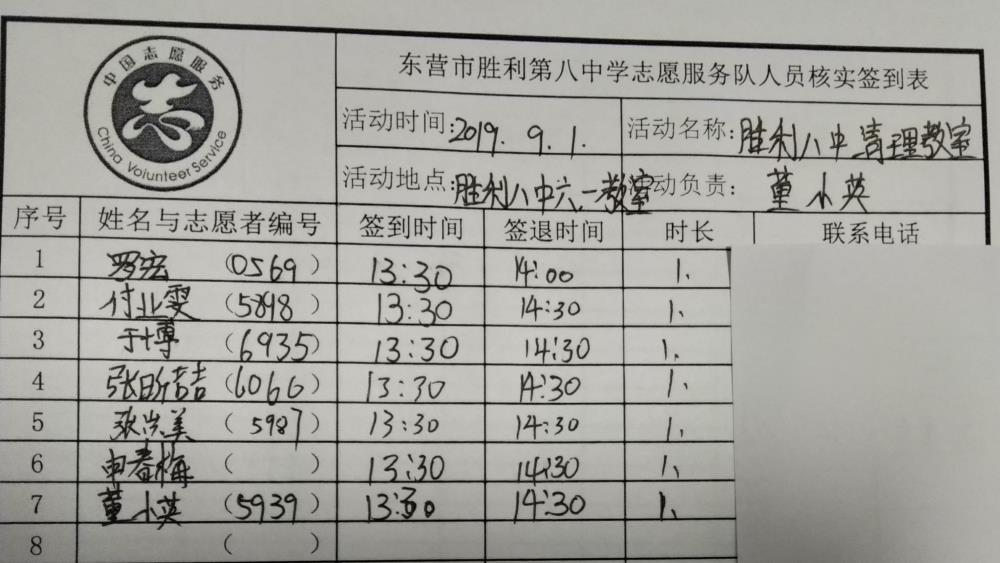 东营市胜利第八中学志愿服务队人员核实签到表
中国志愿服务
志
China Volunteer Service
活动时间:2019.9.1. 活动名称:胜利八中清理教室
活动地点:胜利八中六.一教室 活动负责: 董小英
序号 姓名与志愿者编号 签到时间 签退时间 时长 联系电话
1 罗宏 (0569) 13:30 14:00 1、
2 付业雯 (5898) 13:30 14:30 1、
3 于博 (6935) 13:30 14:30 1、
4 张昕喆 (6066) 13:30 14:30 1、
5 张岚美 (5987) 13:30 14:30 1、
6 申春梅 ( ) 13:30 14:30 1、
7 董小英 (5939) 13:30 14:30 1、
8 ( )